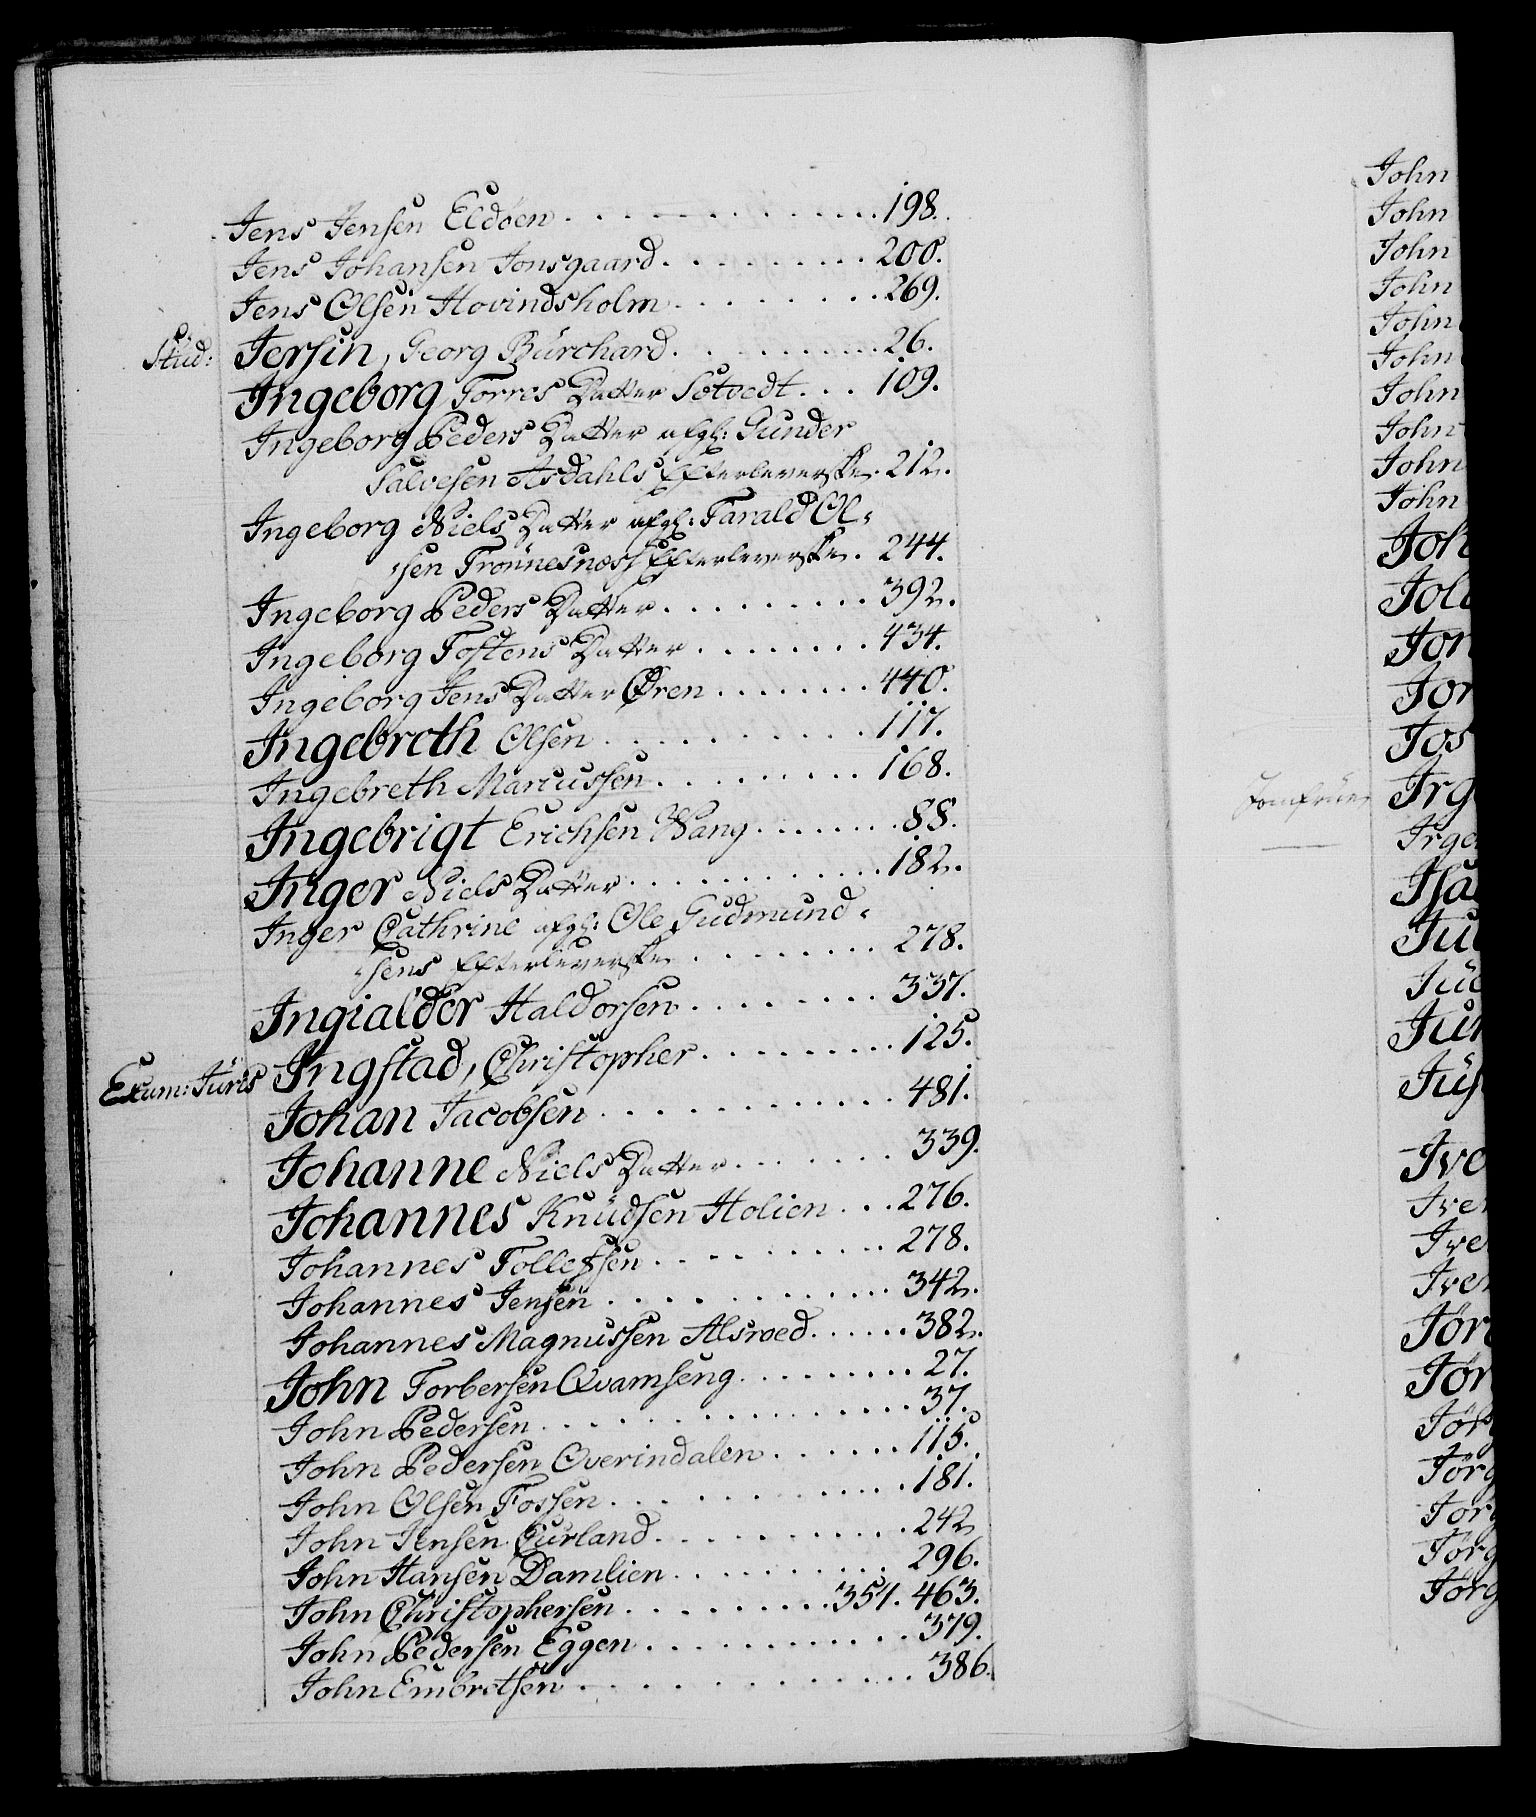 Jens Jensen Eldøen . . . . . . . . . . . . 198.
Jens Johansen Jonsgaard . . . . . . . . . 200.
Jens Olsen Hovindsholm . . . . . . . . 269.
Stud: Jersin, Georg Bürchard . . . . . . . . . 26.
Ingeborg Torres Datter Sotvedt . . . 109.
Ingeborg Peders Datter afg: Gunder
Salvesen Asdahls Efterleverske . 212.
Ingeborg Niels Datter afg: Tarald Ol-
sen Trønnesnæss Efterleverske . 244.
Ingeborg Peders Datter . . . . . . . . . 392.
Ingeborg Tostens Datter . . . . . . . . 434.
Ingeborg Jens Datter Øren . . . . . . . . 440.
Ingebreth Olsen . . . . . . . . . . . 117.
Ingebreth Marcussen . . . . . . . . . 168.
Ingebrigt Erichsen Wang . . . . . . . 88.
Inger Niels Datter . . . . . . . . . . . . 182.
Inger Cathrine afg: Ole Gudmund-
sens Efterleverske . . . . . . . . . 278.
Ingialder Haldorsen . . . . . . . . 337.
Exam: Juris Ingstad, Christopher . . . . . . . . . 125.
Johan Jacobsen . . . . . . . . . . . . 481.
Johanne Niels Datter . . . . . . . 339.
Johannes Knüdsen Holien . . . 276.
Johannes Tollefsen . . . . . . . . . . 278.
Johannes Jensen . . . . . . . . . . . . 342.
Johannes Magnussen Alsroed . . . . . . 382.
John Torbersen Qvamseng . . . . . . . . . 27.
John Pedersen . . . . . . . . . . . . . . . 37.
John Pedersen Overindalen . . . . . . . 115.
John Olsen Fossen . . . . . . . . . . . . 181.
John Jensen Curland . . . . . . . . . . 242
John Hansen Damlien . . . . . . . . . . 296.
John Christophersen . . . . . . . . . 357. 463.
John Pedersen Eggen . . . . . . . . . . . . 379.
John Embretsen . . . . . . . . . . . . 386.
John
John
John
John
John
John
John
John
John
John
Jomfrue